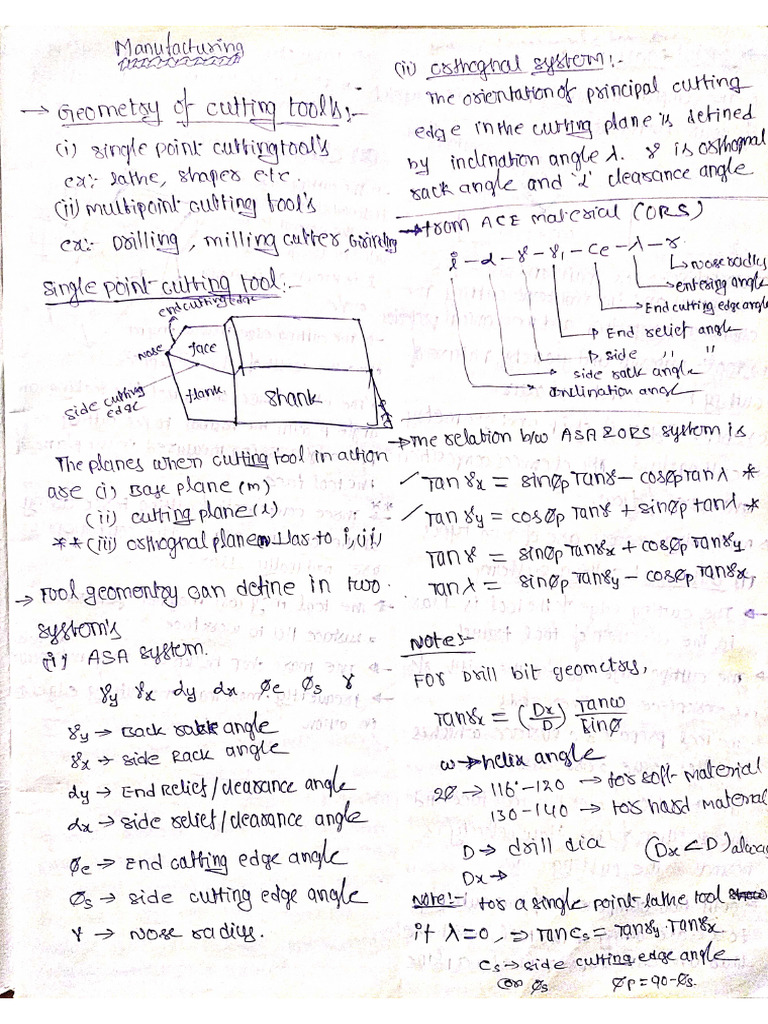 Manufacturing
→ Geometry of cutting tool's:-
(i) single point cutting tool's
ex:- lathe, shaper etc.
(ii) multipoint cutting tool's
ex:- Drilling, milling cutter, Grinding
Single point cutting tool:-
end cutting edge
nose
face
side cutting edge
flank
shank
The planes when cutting tool in action
are (i) Base plane (m)
(ii) cutting plane (l)
** (iii) orthognal plane
→ Tool geomentry can define in two
system's
(i) ASA system.
γy γx αy αx Øe Øs r
γy → Back rake angle
γx → side Rack angle
αy → End Relief/clearance angle
αx → side relief/clearance angle
Øe → End cutting edge angle
Øs → side cutting edge angle
r → Nose radius.
(ii) orthognal system:-
The orientation of principal cutting
edge in the cutting plane is defined
by inclination angle λ. γ is orthognal
rack angle and 'α' clearance angle
→ from ACE material (ORS)
i - α - γ - γ1 - Ce - λ - r
Nose radius
entering angle
End cutting edge angle
End relief angle
side " "
side rack angle
Inclination angle
→ The relation b/w ASA & ORS system is
✓ Tan γx = sinØp Tanγ - cosØp Tan λ *
✓ Tan γy = cosØp Tanγ + sinØp tanλ *
Tan γ = sinØp Tanγx + cosØp Tanγy
Tan λ = sinØp Tanγy - cosØp Tanγx
Note:-
For Drill bit geometry,
Tanγx = (Dx/D) Tanω/sinØ
ω → helix angle
2Ø → 116°-120 → for soft material
130-140 → for hard material
D → drill dia (Dx < D) always
Dx →
Note:- for a single point lathe tool
if λ=0, ⇒ Tan Cs = Tanγy . Tanγx
Cs → side cutting edge angle
(or) Øs Øp = 90-Øs.